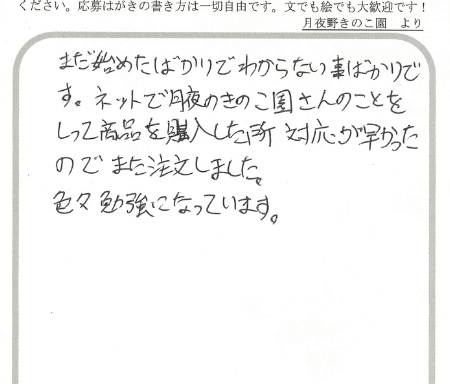 ください。応募はがきの書き方は一切自由です。文でも絵でも大歓迎です！
月夜野きのこ園　より
まだ始めたばかりでわからない事ばかりで
す。ネットで月夜のきのこ園さんのことを
しって商品を購入した所 対応が早かった
のでまた注文しました。
色々勉強になっています。